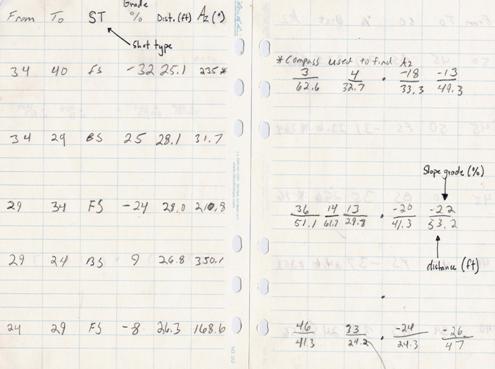 From To ST Grade % Dist.(ft) Az(°)
Shot type
34 40 FS -32 25.1 235*
34 29 BS 25 28.1 31.7
29 34 FS -24 28.0 210.8
29 24 BS 9 26.8 350.1
24 29 FS -8 26.3 168.6
*Compass used to find Az
3 4 • -18 -13
62.6 32.7 33.3 49.3
Slope grade (%)
36 14 13 • -20 -22
51.1 29.8 41.3 53.2
distance (ft)
46 33 • -24 -26
41.3 24.2 24.3 47